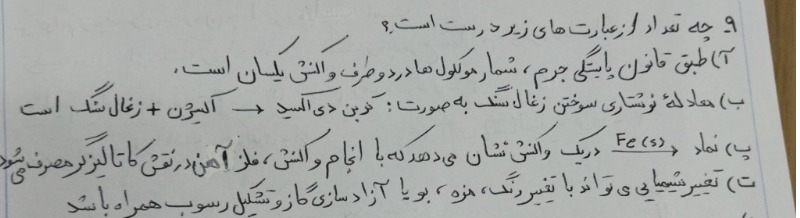 ۹. چه تعداد از عبارت های زیر درست است؟
آ) طبق قانون پایستگی جرم، شمار مولکول ها در دو طرف واکنش یکسان است.
ب) معادلهٔ نوشتاری سوختن زغال سنگ به صورت: کربن دی اکسید → اکسیژن + زغال سنگ است
پ) نماد Fe(s)→ در یک واکنش نشان می دهد که با انجام واکنش، فلز آهن در نقش کاتالیزگر مصرف می شود
ت) تغییر شیمیایی می تواند با تغییر رنگ، مزه، بو یا آزاد سازی گاز و تشکیل رسوب همراه باشد